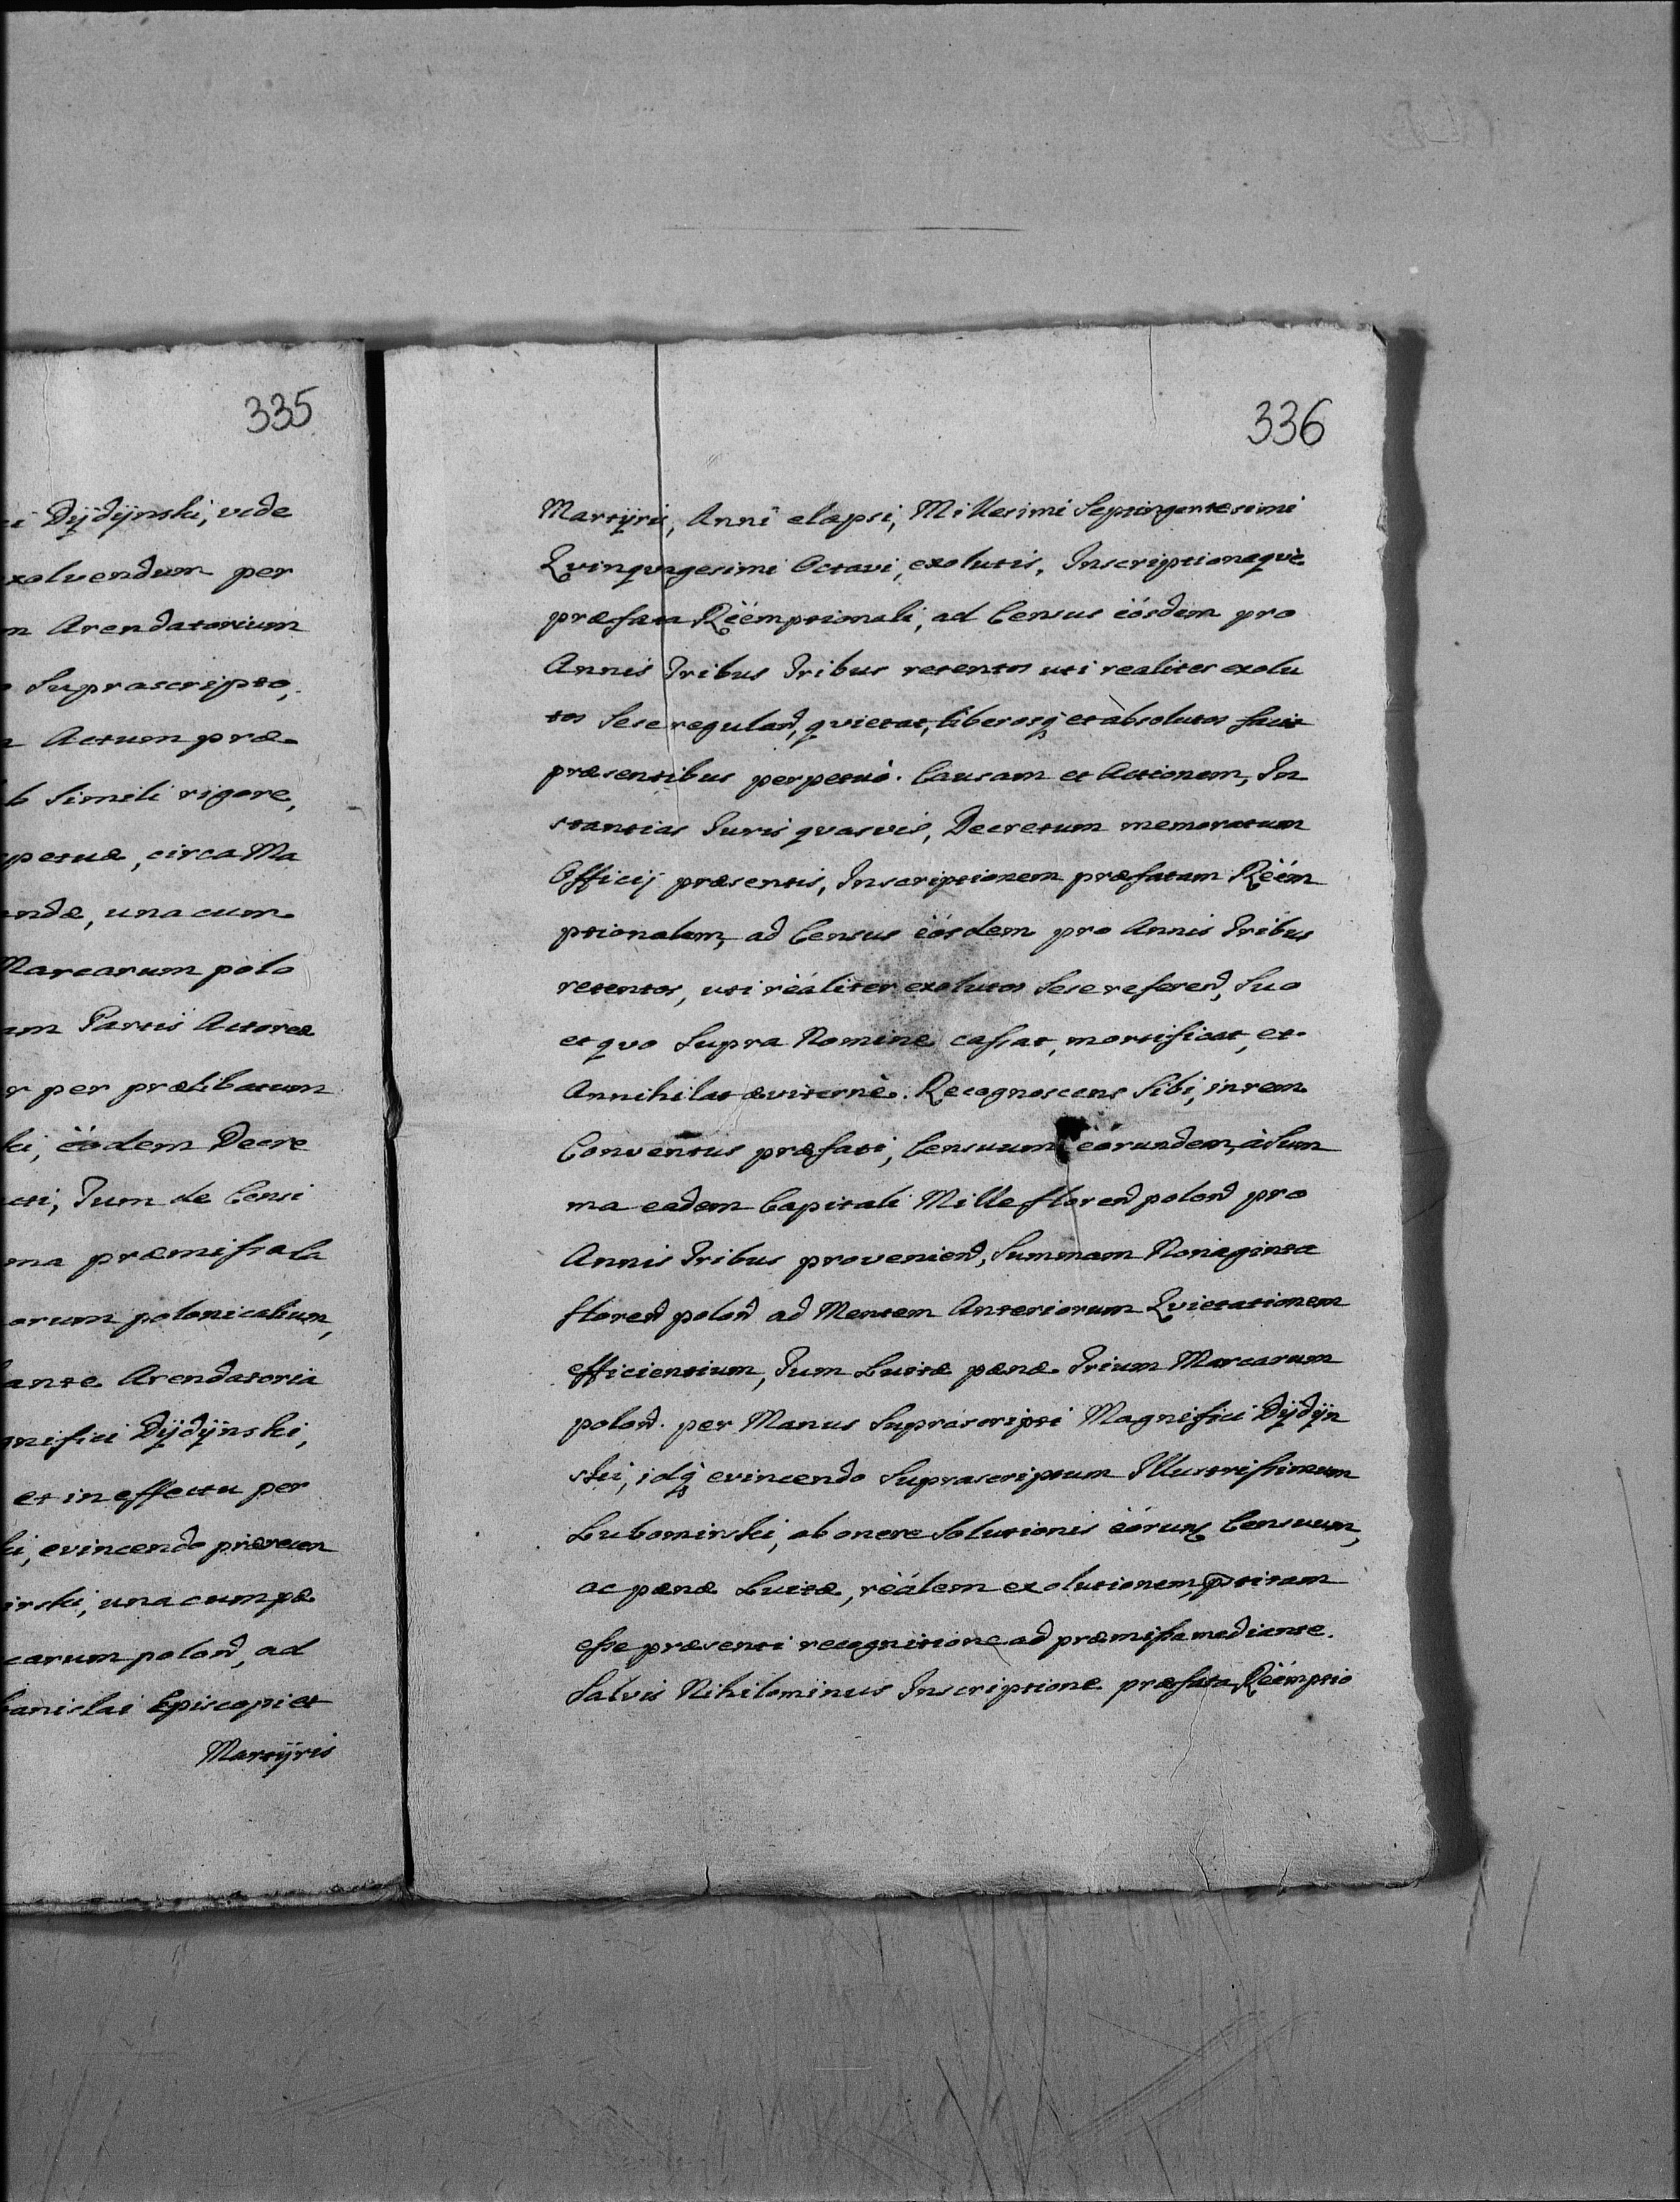 335
i Dÿdÿnski, vide
xolvendum per
m Arendatorium
Suprascripto,
Actum præ
b Simili rigore,
petuæ, circa Ma
ndæ, una cum
Marcarum polo
am Partis Actoreæ
r per prælibatum
ki, eodem Decre
cti, Tum de Censi
ma præmissa la
orum polonicalium,
ante Arendatoria
gnifici Dÿdÿnski,
et in effectu per
ki, evincendo prærecen
irski, una cum pæ
carum polon, ad
anislai Episcopi et
Martÿris
336
Martÿris, Anni elapsi, Millesimi Septingentesimi
Qvinqvagesimi Octavi, exolutis, Inscriptioneqvè
præfata Rëemptionali, ad Census ëosdem pro
Annis Tribus Tribus retentos uti realiter exolu
tos Sese regulan, qvietat, liberosq et absolutos facit
præsentibus perpetuò. Causam et Actionem, In
stantias Juris qvasvis, Decretum memoratum
Officij præsentis, Inscriptionem præfatam Rëém
ptionalem, ad Census ëosdem pro Annis Tribus
retentos, uti rëáliter exolutos Sese referen, Suo
et qvo Supra Nomine cassat, mortificat, et
Annihilat æviternè. Recognoscens Sibi, in rem
Conventus præfati, Censuum ëórundem, à Sum
ma eadem Capitali Mille floren polon pro
Annis Tribus provenien, Summam Nonaginta
floren polon ad Mentem Anteriorum Qvietationem
efficientium, Tum Luitæ pænæ Trium Marcarum
polon. per Manus Suprascripti Magnifici Dÿdÿn
ski, idq evincendo Suprascriptum Illustrissimum
Lubomirski, ab onere Solutionis ëórunq Censuum,
ac pænæ Luitæ, rëálem exolutionem, pstitam
esse præsenti recognitione ad præmissa mediante.
Salvis Nihilominus Inscriptione præfata Rëémptio